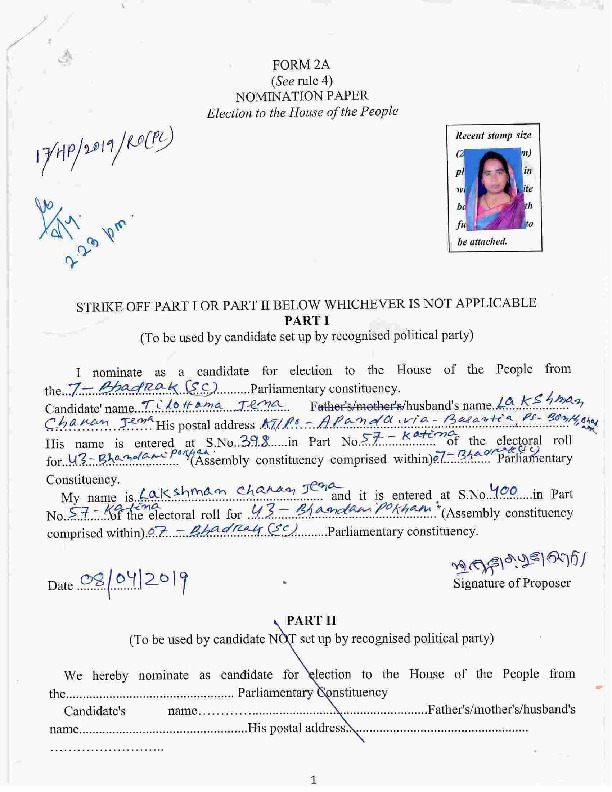 FORM 2A
(See rule 4)
NOMINATION PAPER
Election to the House of the People
17/HP/2019/RO(PC)
2.23 pm.
Recent stamp size
be attached.
STRIKE OFF PART I OR PART II BELOW WHICHEVER IS NOT APPLICABLE
PART I
(To be used by candidate set up by recognised political party)
I nominate as a candidate for election to the House of the People from
the 7 - Bhadrak (SC) Parliamentary constituency.
Candidate' name Tilottama Jena Father's/mother's/husband's name Lakshman
Charan Jena His postal address AT/Po - Apanda via - Basantia Ps -
His name is entered at S.No. 398 in Part No. 57 - Katima of the electoral roll
for 43 - Bhandari pokhari (Assembly constituency comprised within) 07 - Bhadrak (SC) Parliamentary
Constituency.
My name is Lakshman Charan Jena and it is entered at S.No. 400 in Part
No. 57 - Katima of the electoral roll for 43 - Bhandari Pokhari (Assembly constituency
comprised within) 07 - Bhadrak (SC) Parliamentary constituency.
Date 08/04/2019
Signature of Proposer
PART II
(To be used by candidate NOT set up by recognised political party)
We hereby nominate as candidate for election to the House of the People from
the.............................................. Parliamentary Constituency
Candidate's name..............................................Father's/mother's/husband's
name..............................................His postal address..............................................
..........................
1